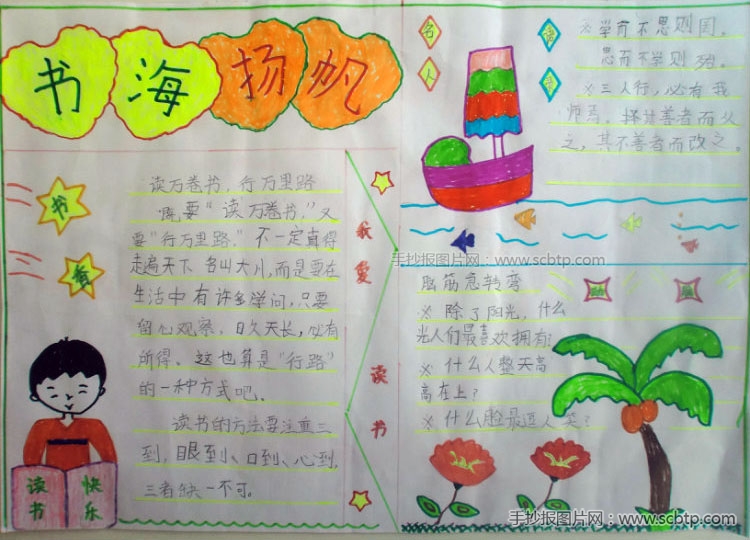 书海扬帆
书
香
读万卷书，行万里路
既要“读万卷书，”又
要“行万里路，”不一定真得
走遍天下 名山大川，而是要在
生活中有许多学问，只要
留心观察，日久天长，必有
所得，这也算是“行路”
的一种方式吧。
读书的方法要注重三
到，眼到、口到、心到，
三者缺一不可。
读书
快乐
我爱读书
名人
※学而不思则罔，
思而不学则殆。
※三人行，必有我
师焉，择其善者而从
之，其不善者而改之。
手抄报图片网：www.scbtp.com
脑筋急转弯
※ 除了阳光，什么
光人们最喜欢拥有？
※ 什么人整天高
高在上？
※ 什么脸最逗人笑？
手抄报图片网：www.scbtp.com